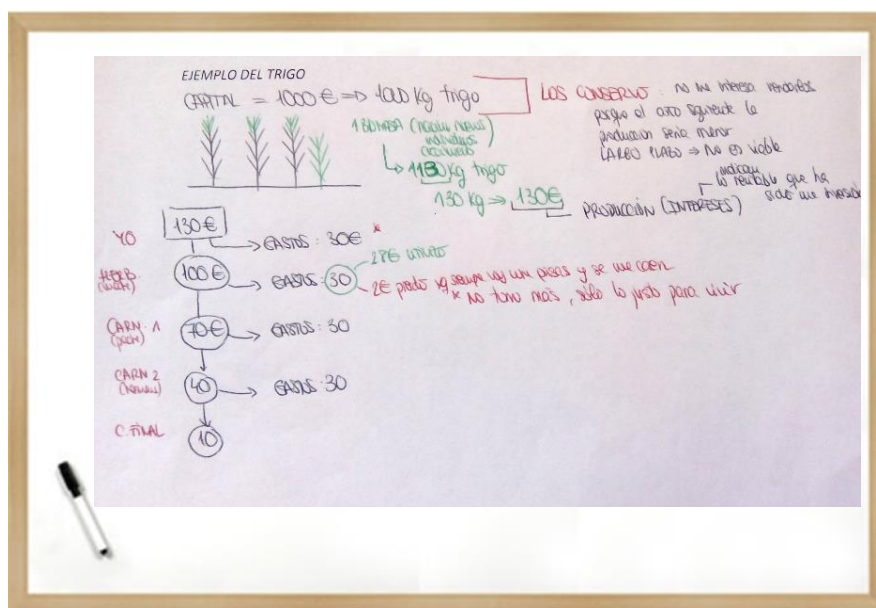 EJEMPLO DEL TRIGO
CAPITAL = 1000 € => 1000 Kg trigo
LOS CONSERVO: no me interesa venderlos
porque el año siguiente la
producción sería menor
LARGO PLAZO => No es viable
↑BIOMASA (nacen nuevos
individuos
1130 Kg trigo
130 Kg => 130€
PRODUCCIÓN (INTERESES)
indican
lo rentable que ha
sido mi inversión
YO
130 €
GASTOS: 30€ *
28€ utilizo
HERB.
100€
GASTOS: 30
2€ pierdo xq siempre voy con prisas y se me caen
* no tomo más, sólo lo justo para vivir
CARN. 1
(padre)
70€
GASTOS: 30
CARN 2
40
GASTOS: 30
C. FINAL
10